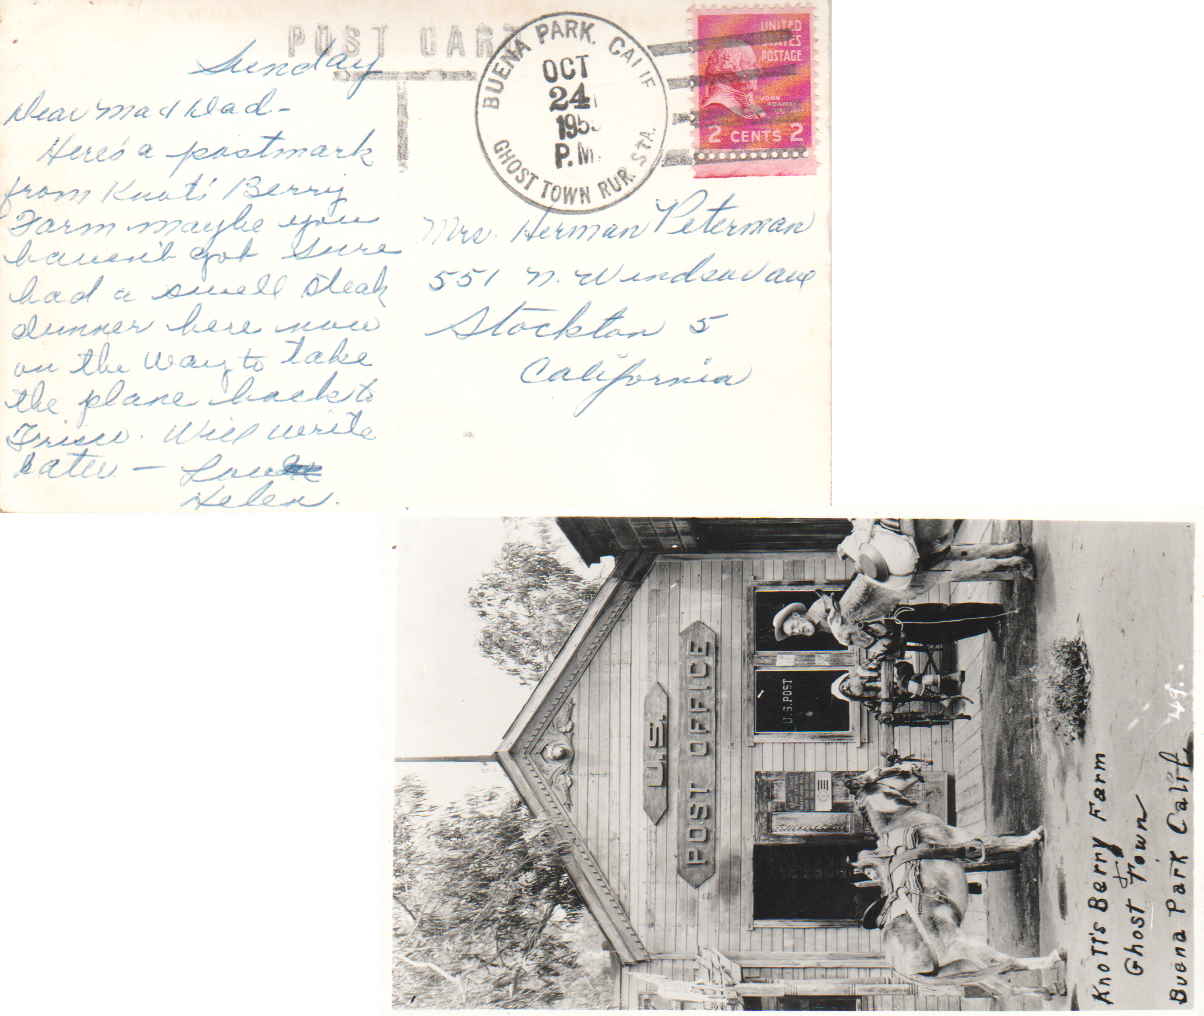 POST CARD
BUENA PARK, CALIF
OCT
24
195
P.M.
GHOST TOWN RUR. STA.
UNITED
STATES
POSTAGE
JOHN
ADAMS
2 CENTS 2
Sunday
Dear Ma & Dad -
Here's a postmark
from Knott's Berry
Farm maybe you
haven't got sure
had a swell steak
dinner here now
on the way to take
the plane back to
Frisco. Will write
later - Love
Helen.
Mrs. Herman Peterman
551 N. Windsor Ave
Stockton 5
California
U.S.
POST OFFICE
U.S. POST
Knott's Berry Farm
Ghost Town
Buena Park Calif
49.